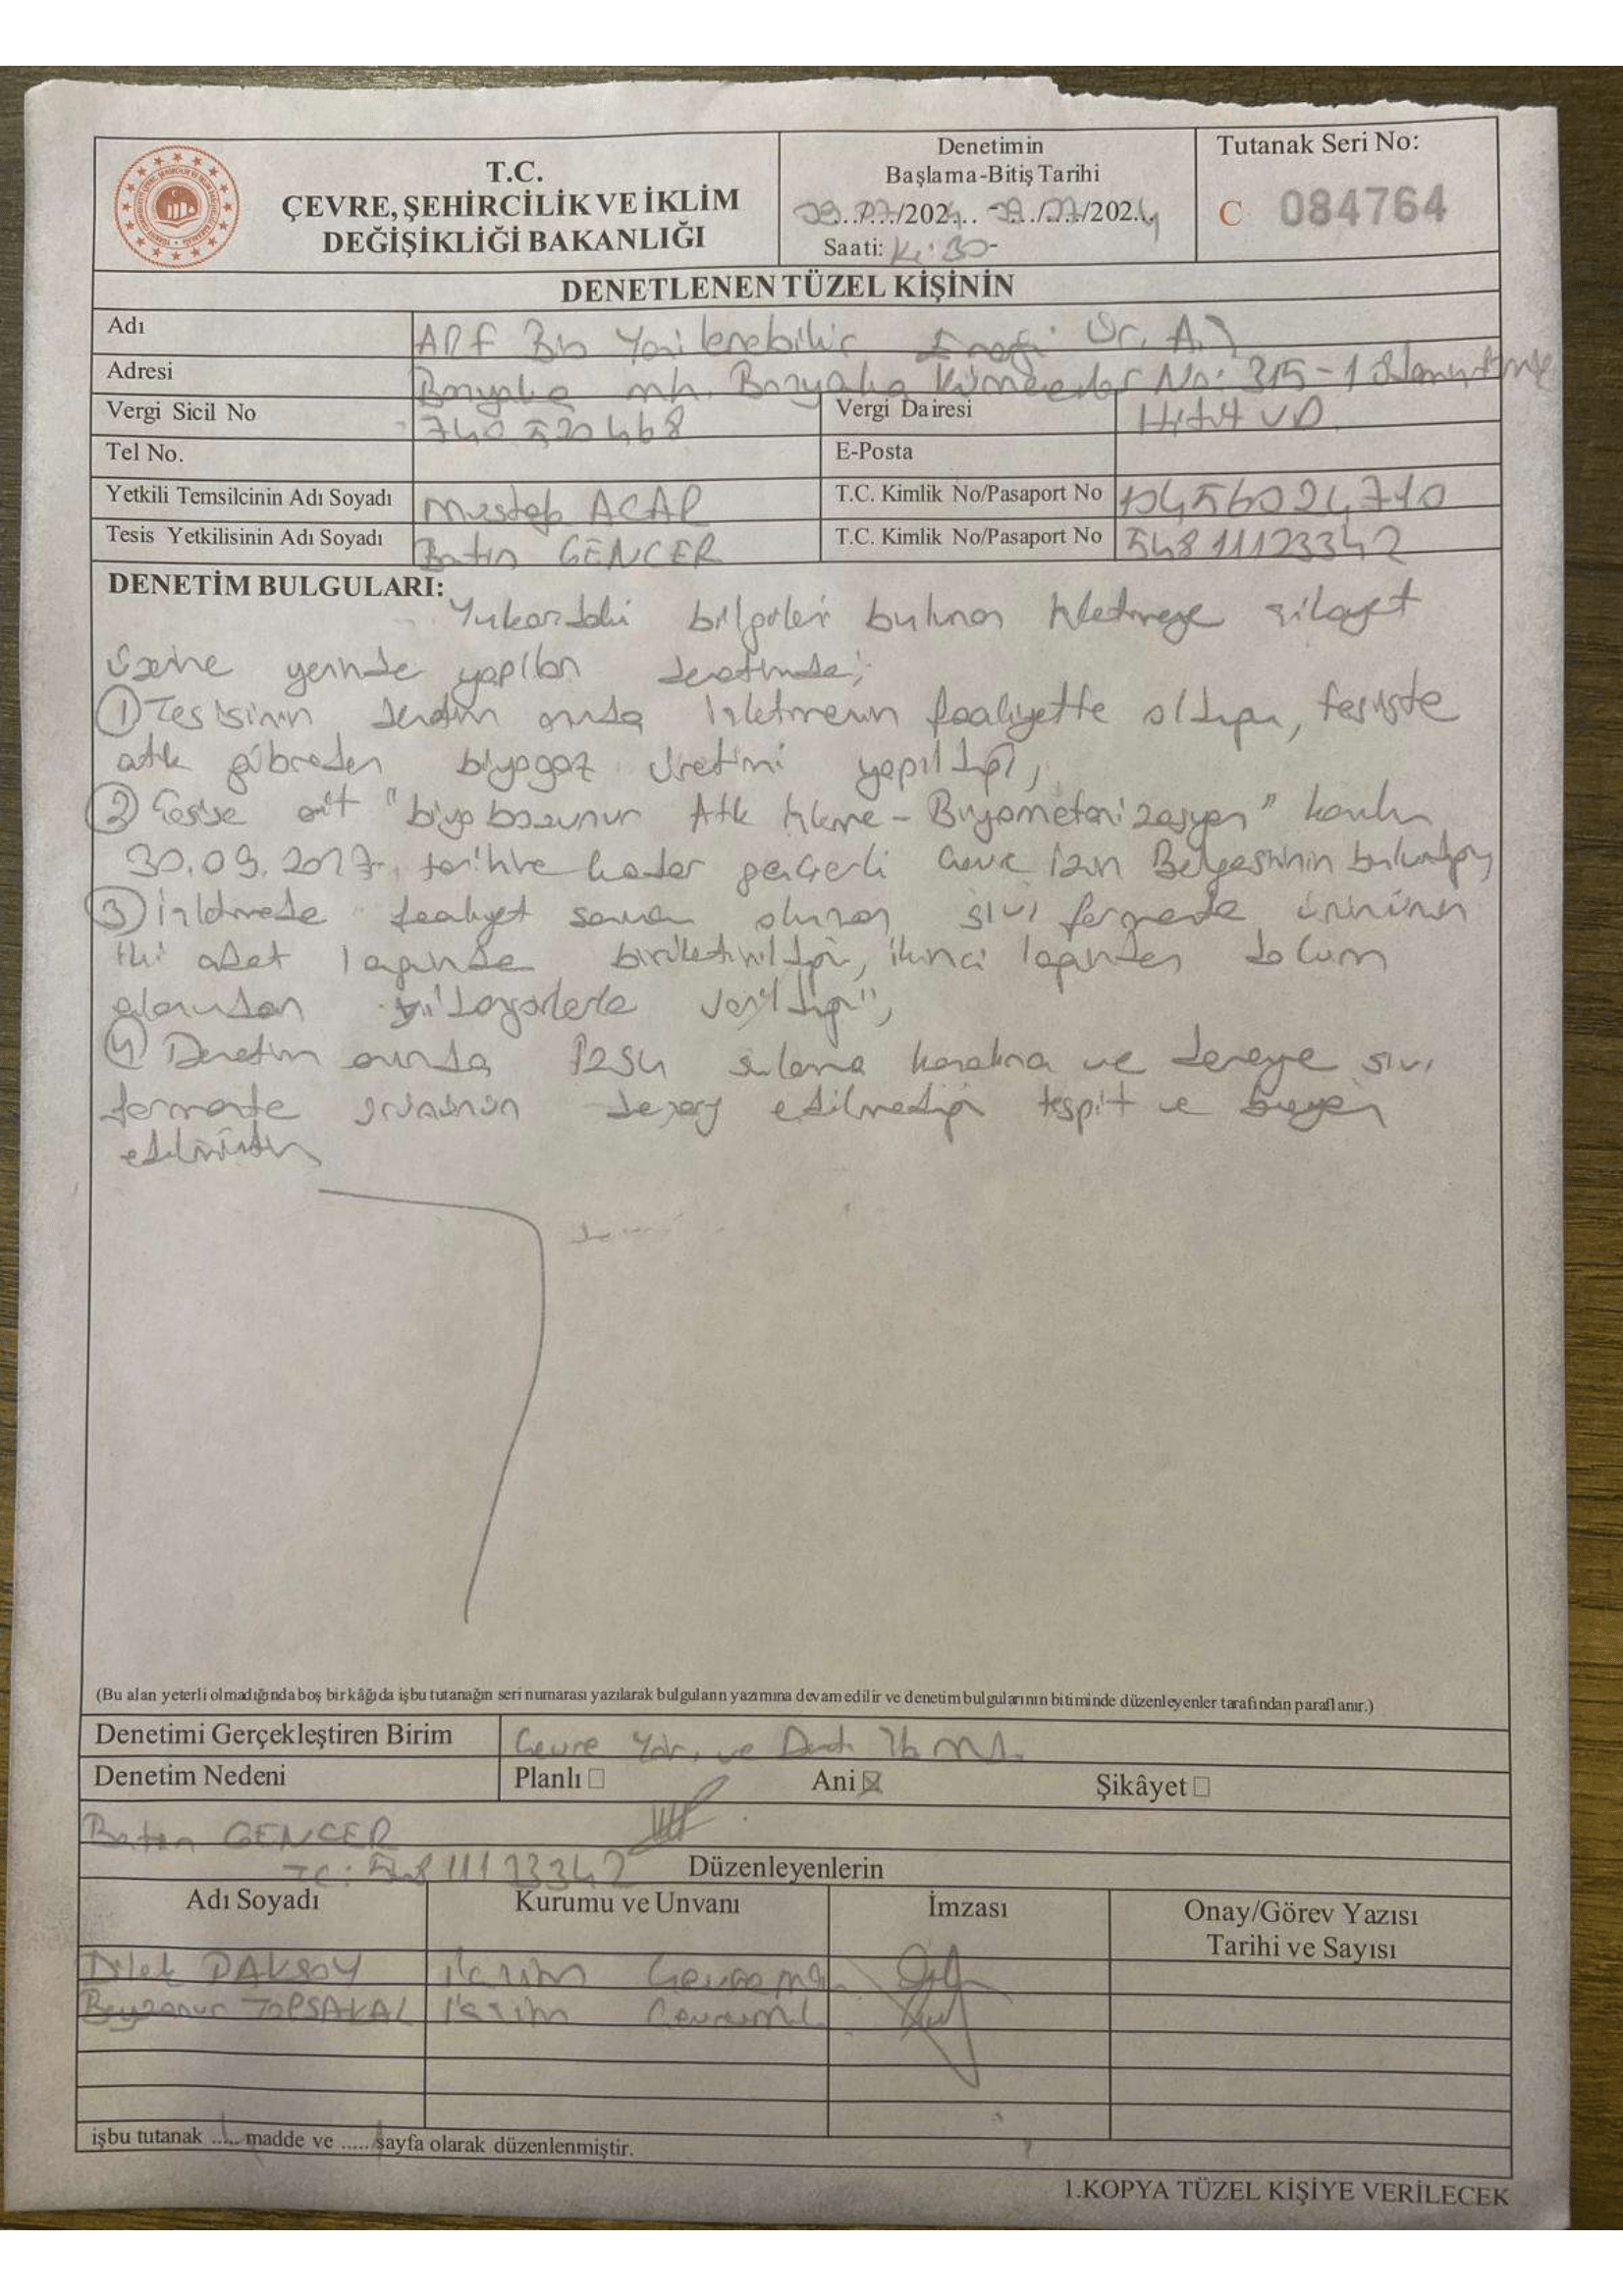 T.C.
ÇEVRE, ŞEHİRCİLİK VE İKLİM
DEĞİŞİKLİĞİ BAKANLIĞI
Denetimin
Başlama-Bitiş Tarihi
09.07/2024
Saati:
Tutanak Seri No:
C 084764
DENETLENEN TÜZEL KİŞİNİN
Adı
Yenilenebilir Enerji Ür. A.Ş
Adresi
Bozyaka mh. Bozyaka No: 315-1
Vergi Sicil No
740 520 468
Vergi Dairesi
VD
Tel No.
E-Posta
Yetkili Temsilcinin Adı Soyadı
Mustafa ACAR
T.C. Kimlik No/Pasaport No
Tesis Yetkilisinin Adı Soyadı
Batın GENCER
T.C. Kimlik No/Pasaport No
54811123342
DENETİM BULGULARI:
Yukarıdaki bilgileri bulunan işletmeye şikayet
üzerine yerinde yapılan denetimde;
① Tesisinin denetim anında işletmenin faaliyette olduğu, tesiste
atık gübreden biyogaz üretimi yapıldığı,
② Tesise ait "biyobozunur Atık İşleme - Biyometanizasyon" konulu
30.09.2027 tarihine kadar geçerli Çevre İzin Belgesinin bulunduğu
③ İşletmede faaliyet sonucu oluşan sıvı fermente ürününün
iki adet lagünde biriktirildiği, ikinci lagünden dolum
alanından vidanjörlerle verildiği,
④ Denetim anında sulama kanalına ve dereye sıvı
fermente ürününün deşarj edilmediği tespit ve beyan
edilmiştir
(Bu alan yeterli olmadığında boş bir kâğıda işbu tutanağın seri numarası yazılarak bulguların yazımına devam edilir ve denetim bulgularının bitiminde düzenleyenler tarafından paraflanır.)
Denetimi Gerçekleştiren Birim
Çevre Yön. ve Denet.
Denetim Nedeni
Planlı □ Ani ☒ Şikâyet □
Batın GENCER
TC: 54811123342
Düzenleyenlerin
Adı Soyadı
Kurumu ve Unvanı
İmzası
Onay/Görev Yazısı
Tarihi ve Sayısı
Dilek PAKSOY
Beyzanur TOPSAKAL
işbu tutanak ..... madde ve ..... sayfa olarak düzenlenmiştir.
1.KOPYA TÜZEL KİŞİYE VERİLECEK